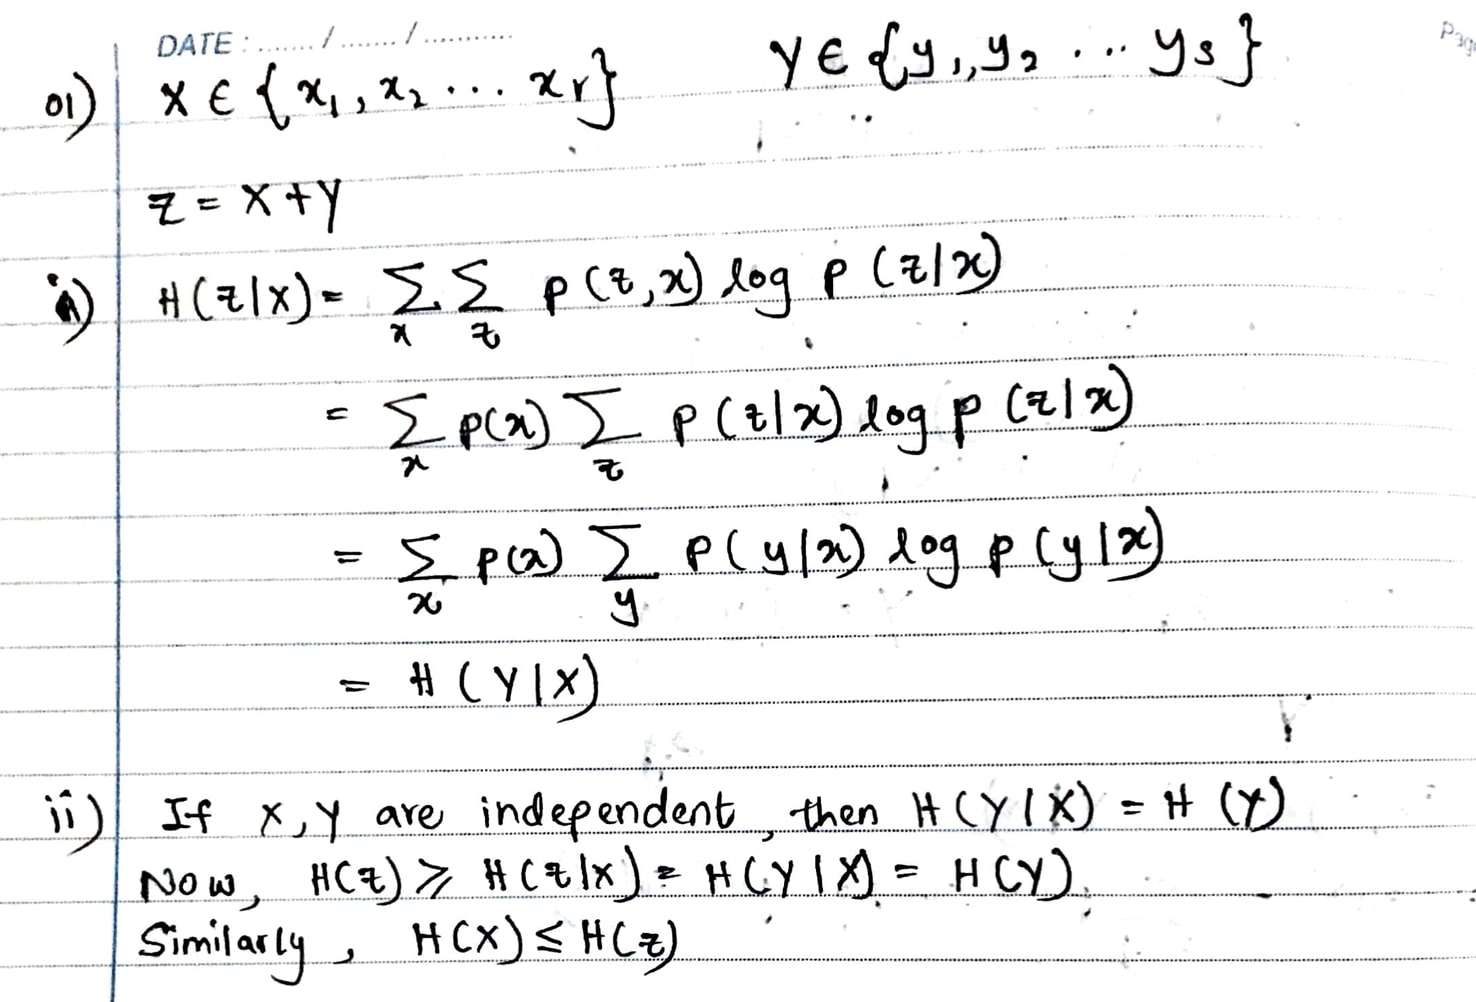 DATE : ....... / ....... / ............
01) X ∈ { x₁, x₂ ... xᵣ} Y ∈ {y₁, y₂ ... yₛ}
z = X + Y
i) H(z|X) = Σₓ Σ_z p(z,x) log p(z|x)
= Σₓ p(x) Σ_z p(z|x) log p(z|x)
= Σₓ p(x) Σ_y p(y|x) log p(y|x)
= H(Y|X)
ii) If X, Y are independent, then H(Y|X) = H(Y)
Now, H(z) ⩾ H(z|X) = H(Y|X) = H(Y).
Similarly, H(X) ≤ H(z)